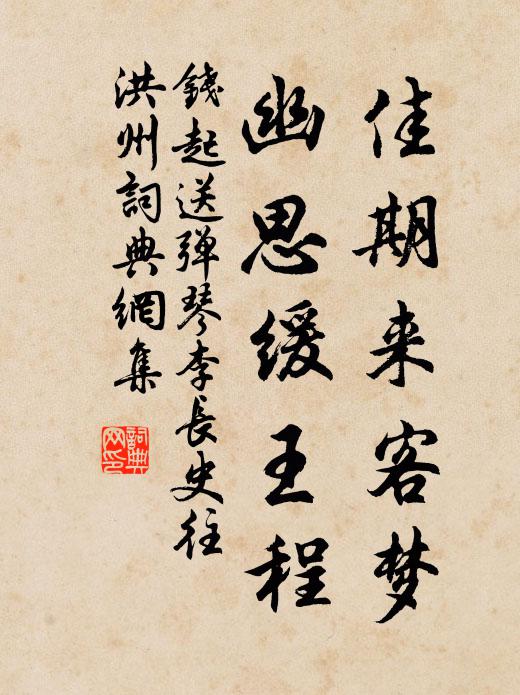 佳期来客梦
幽思缓王程
錢起送弹琴李長史往
洪州詞典網集
詞典网印